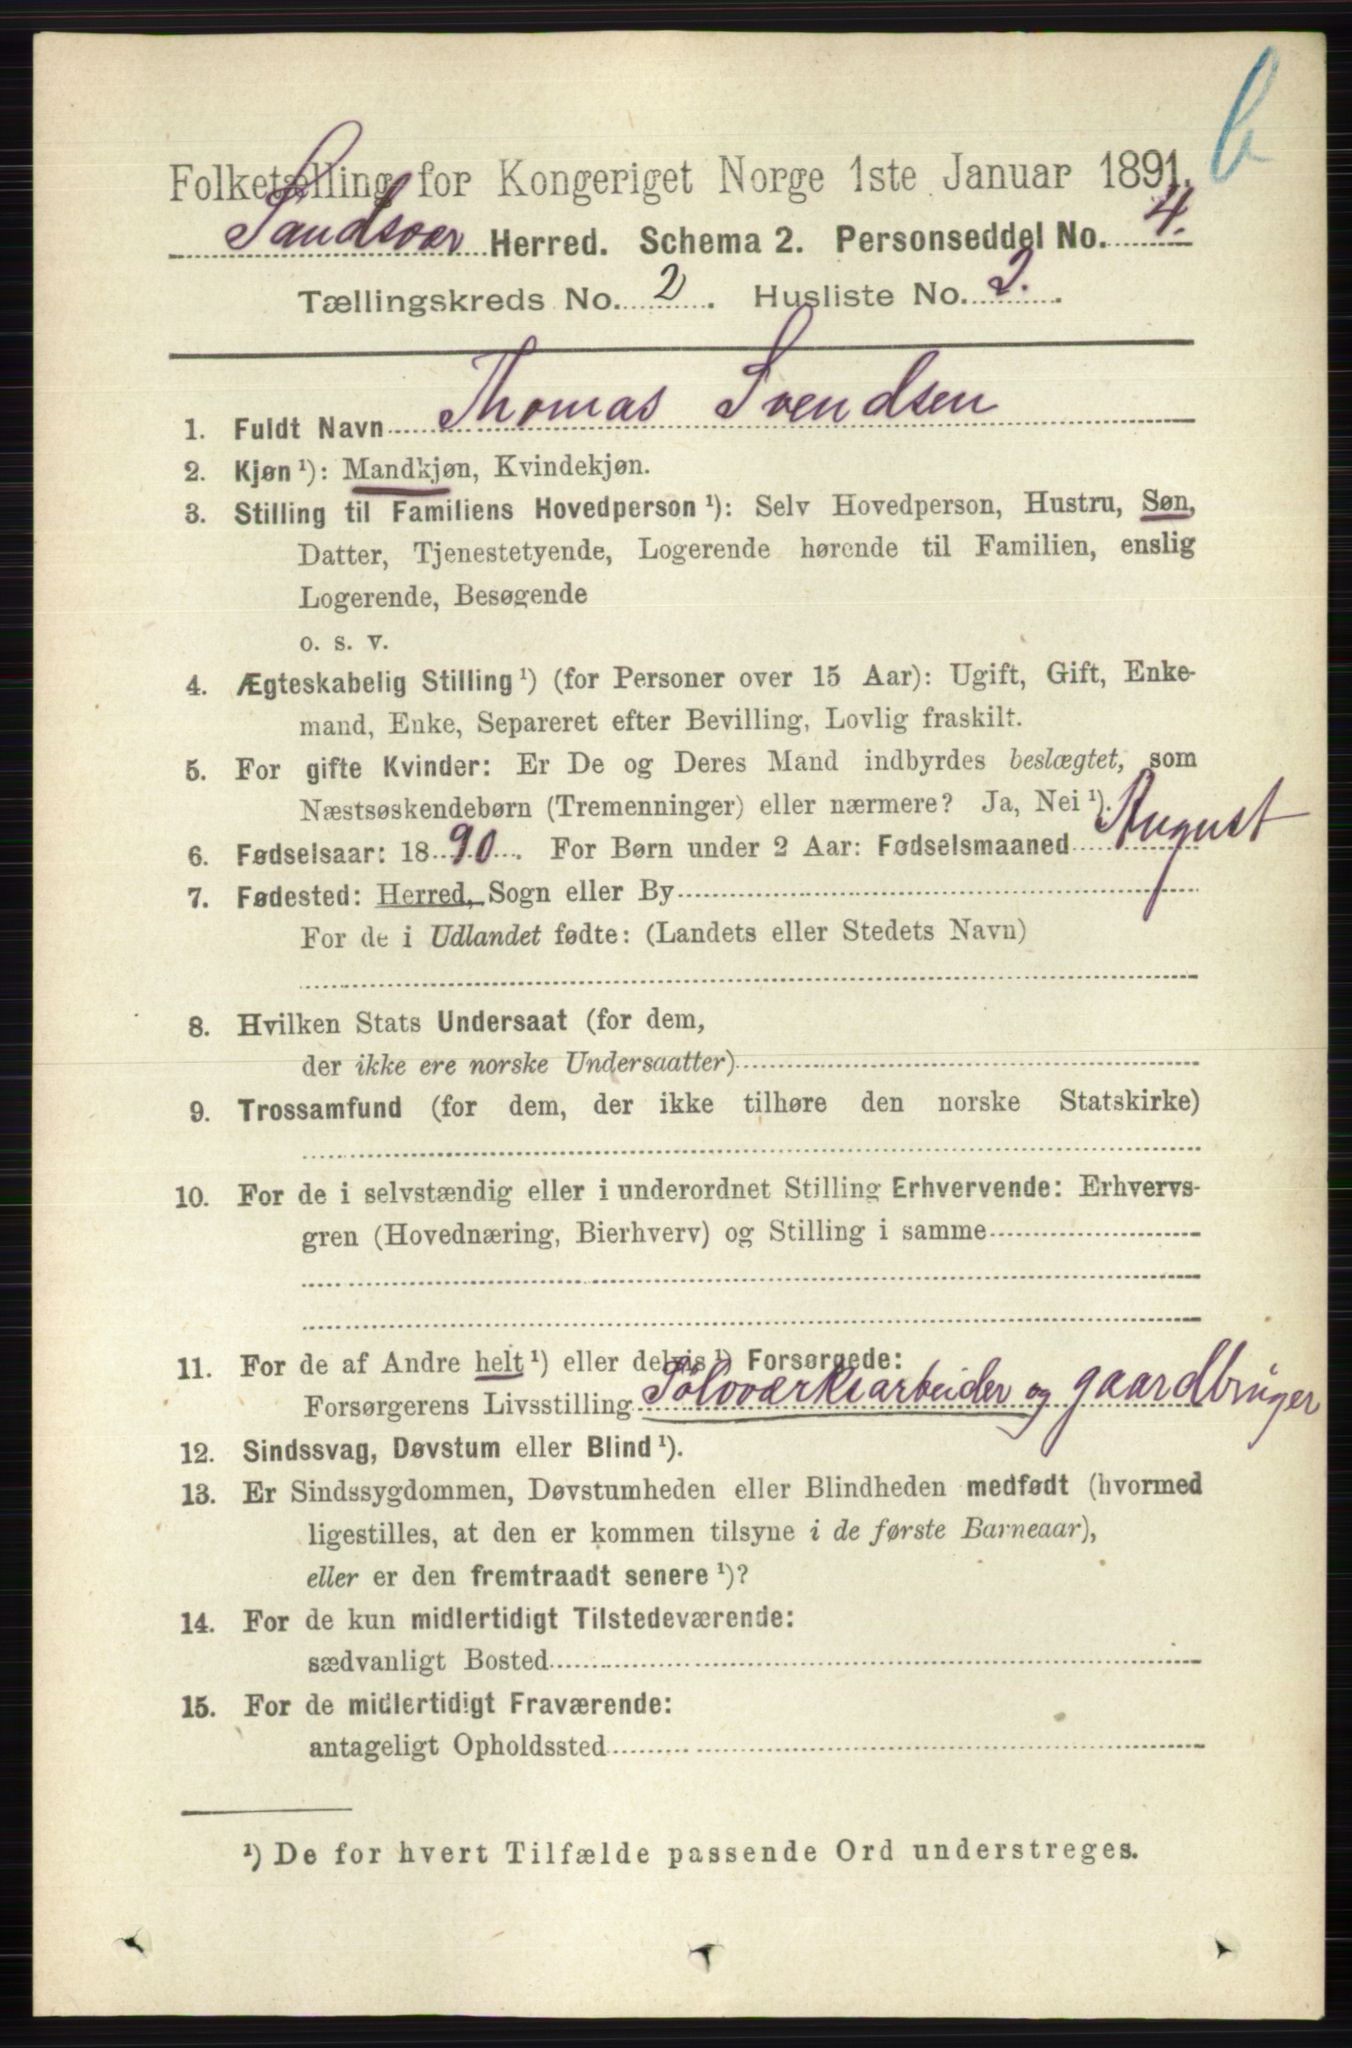 b
Folketælling for Kongeriget Norge 1ste Januar 1891.
Sandsvær Herred. Schema 2. Personseddel No. 4.
Tællingskreds No. 2. Husliste No. 2.
1. Fuldt Navn Thomas Svendsen
2. Kjøn ¹): Mandkjøn, Kvindekjøn.
3. Stilling til Familiens Hovedperson ¹): Selv Hovedperson, Hustru, Søn,
Datter, Tjenestetyende, Logerende hørende til Familien, enslig
Logerende, Besøgende
o. s. v.
4. Ægteskabelig Stilling ¹) (for Personer over 15 Aar): Ugift, Gift, Enke-
mand, Enke, Separeret efter Bevilling, Lovlig fraskilt.
5. For gifte Kvinder: Er De og Deres Mand indbyrdes beslægtet, som
Næstsøskendebørn (Tremenninger) eller nærmere? Ja, Nei ¹).
6. Fødselsaar: 1890. For Børn under 2 Aar: Fødselsmaaned August
7. Fødested: Herred, Sogn eller By
For de i Udlandet fødte: (Landets eller Stedets Navn)
8. Hvilken Stats Undersaat (for dem,
der ikke ere norske Undersaatter)
9. Trossamfund (for dem, der ikke tilhøre den norske Statskirke)
10. For de i selvstændig eller i underordnet Stilling Erhvervende: Erhvervs-
gren (Hovednæring, Bierhverv) og Stilling i samme
11. For de af Andre helt ¹) eller delvis ¹) Forsørgede:
Forsørgerens Livsstilling Sølvværksarbeider og gaardbruger
12. Sindssvag, Døvstum eller Blind ¹).
13. Er Sindssygdommen, Døvstumheden eller Blindheden medfødt (hvormed
ligestilles, at den er kommen tilsyne i de første Barneaar),
eller er den fremtraadt senere ¹)?
14. For de kun midlertidigt Tilstedeværende:
sædvanligt Bosted
15. For de midlertidigt Fraværende:
antageligt Opholdssted
¹) De for hvert Tilfælde passende Ord understreges.